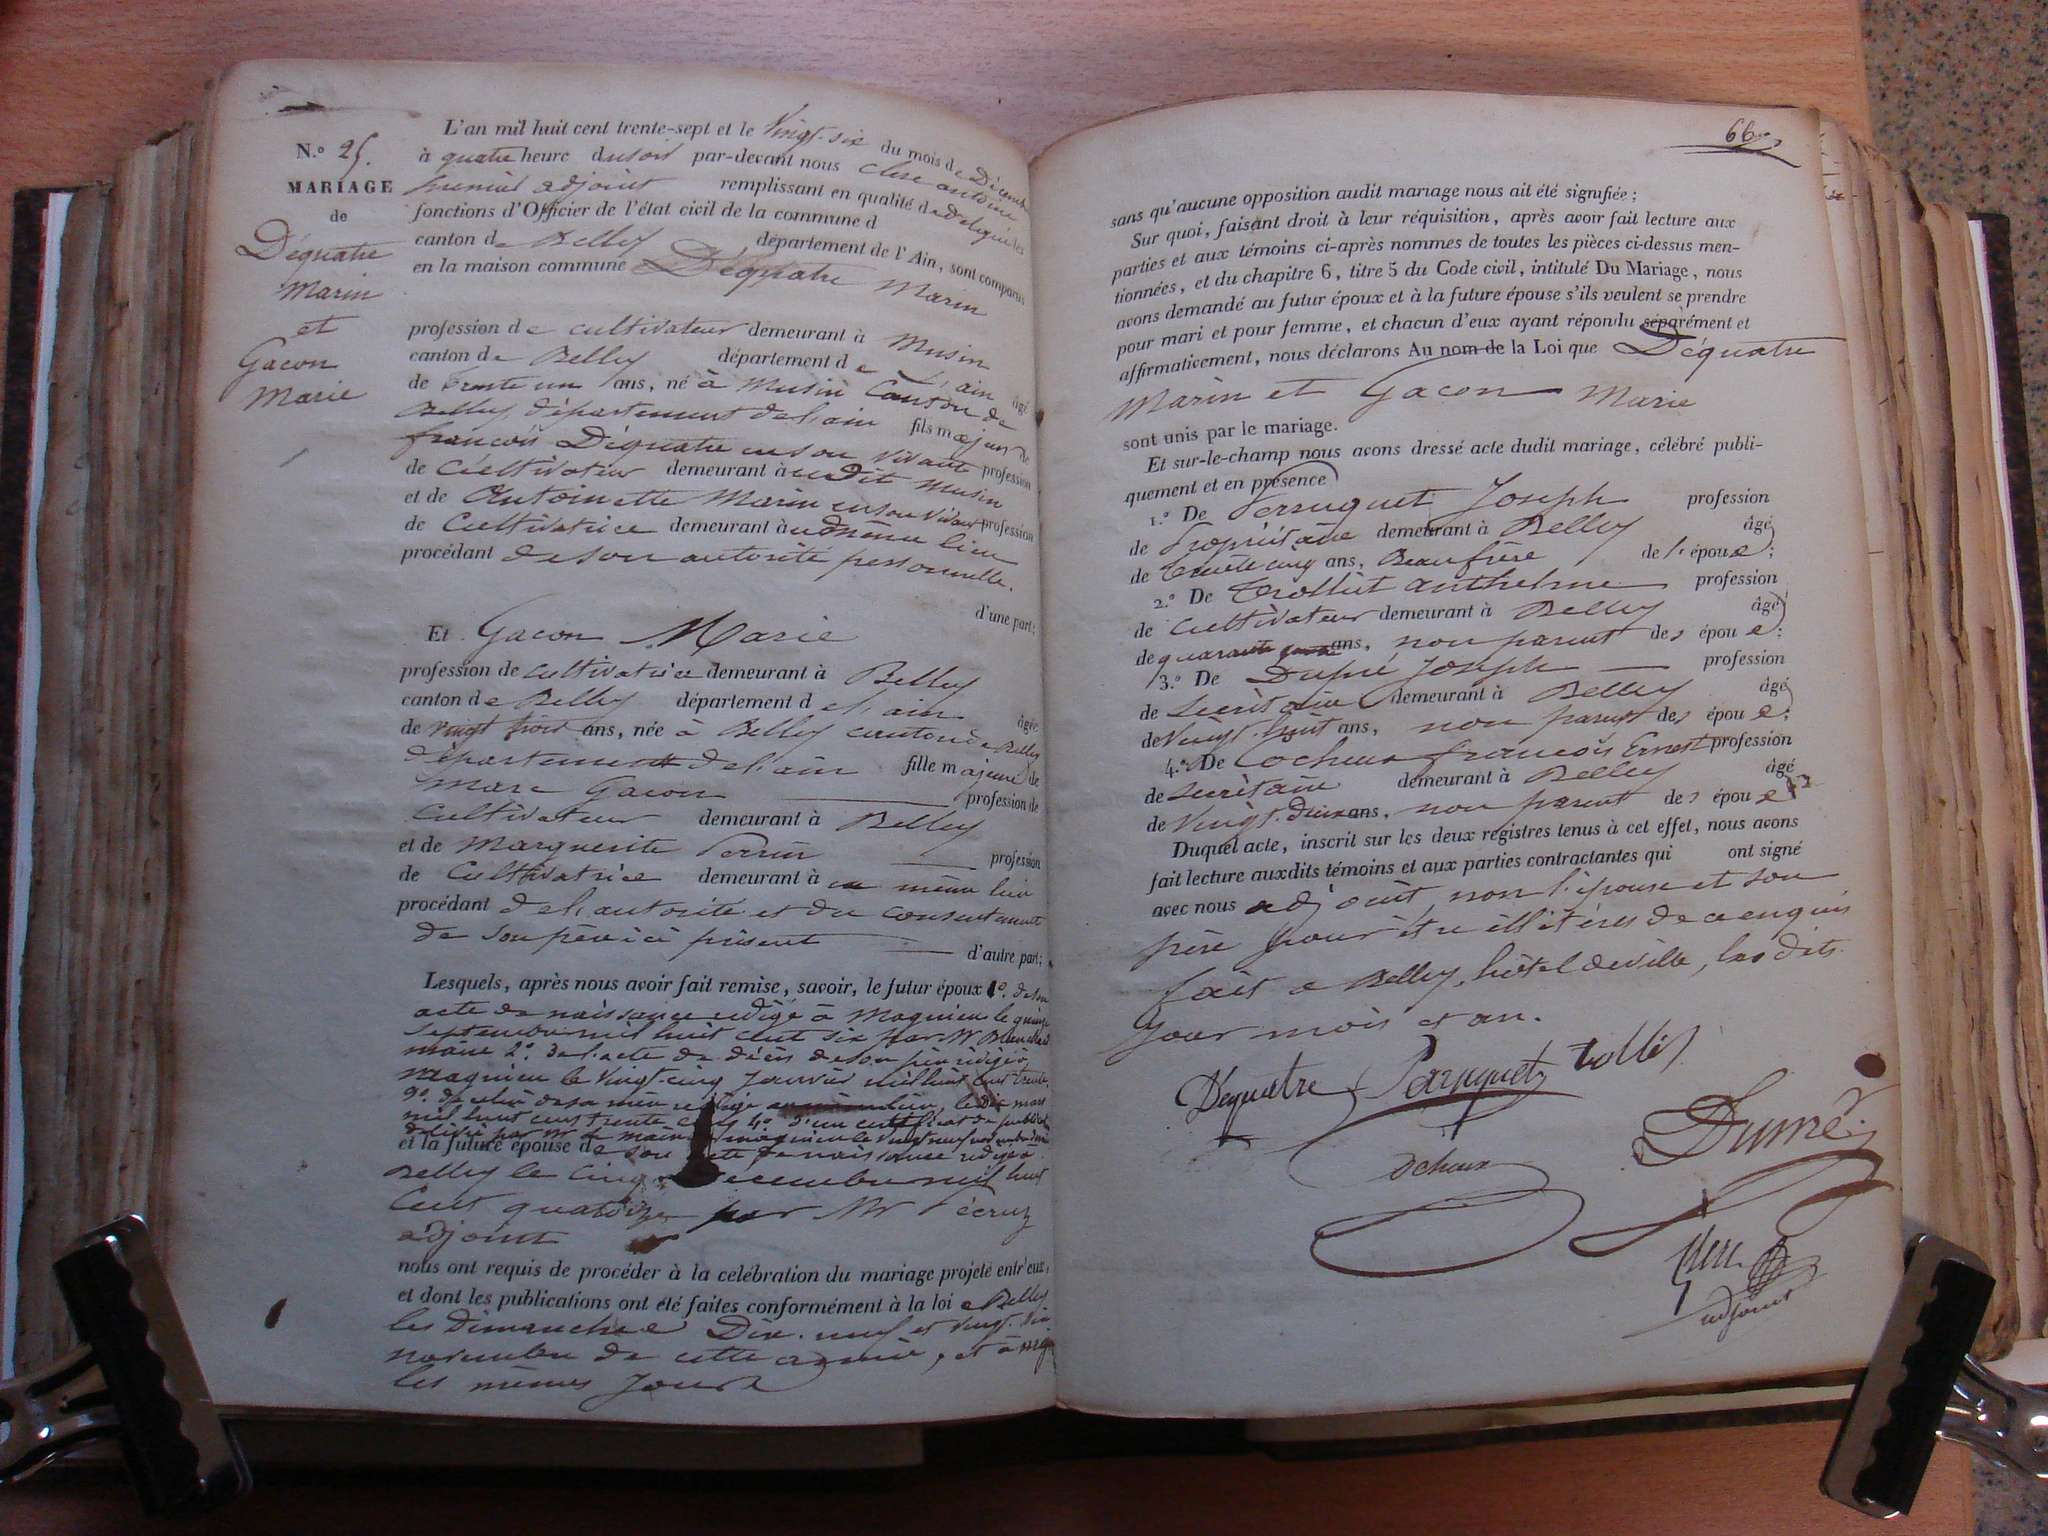 N.º 25.
MARIAGE
de
Déquatre
Marin
et
Gacon
Marie
L'an mil huit cent trente-sept et le Vingt-six du mois de Décembre
à quatre heure du soir par-devant nous Clerc antoine
premier adjoint remplissant en qualité de délégué les
fonctions d'Officier de l'état civil de la commune d
canton de Belley département de l'Ain, sont comparus
en la maison commune Déquatre Marin
profession de cultivateur demeurant à Musin
canton de Belley département de L'ain âgé
de trente un ans, né à Musin Canton de
Belley département de l'ain fils majeur de
francois Déquatre en son vivant profession
de Cultivateur demeurant à udit Musin
et de Antoinette Marin en son vivant profession
de Cultivatrice demeurant à u même lieu
procédant de son autorité personnelle.
d'une part;
Et Gacon Marie
profession de cultivatrice demeurant à Belley
canton de Belley département de l'ain âgée
de vingt trois ans, née à Belley canton de Belley
département de l'ain fille majeure de
Marc Gacon profession de
Cultivateur demeurant à Belley
et de Marguerite Perrin profession
de Cultivatrice demeurant à u même lieu
procédant de l'autorité et du consentement
de son père ici présent d'autre part;
Lesquels, après nous avoir fait remise, savoir, le futur époux 1º. de son
acte de naissance rédigé à Magnieu le quinze
septembre mil huit cent six par Mr
maire 2º. de l'acte de décès de son père rédigé à
Magnieu le vingt-cinq Janvier mil huit cent trente,
3º. de celui de sa mère rédigé au même lieu, le dix mars
mil huit cent trente cinq 4º. d'un certificat de publication
délivré par Mr le maire de magnieu le vingt neuf novembre dernier
et la future épouse de son acte de naissance rédigé à
Belley le cinq Décembre mil huit
Cent quatorze par Mr Pécruz
adjoint
nous ont requis de procéder à la célébration du mariage projeté entr'eux,
et dont les publications ont été faites conformément à la loi à Belley
les Dimanches Dix-neuf et vingt-six
novembre de cette année, et à
les mêmes Jours
66
sans qu'aucune opposition audit mariage nous ait été signifiée;
Sur quoi, faisant droit à leur réquisition, après avoir fait lecture aux
parties et aux témoins ci-après nommes de toutes les pièces ci-dessus men-
tionnées, et du chapitre 6, titre 5 du Code civil, intitulé Du Mariage, nous
avons demandé au futur époux et à la future épouse s'ils veulent se prendre
pour mari et pour femme, et chacun d'eux ayant répondu séparément et
affirmativement, nous déclarons Au nom de la Loi que Déquatre
Marin et Gacon Marie
sont unis par le mariage.
Et sur-le-champ nous avons dressé acte dudit mariage, célébré publi-
quement et en présence
1.º De Perruquet Joseph profession
de Propriétaire demeurant à Belley âgé
de trente cinq ans, Beaufrère de l'épouse;
2.º De Trolliet anthelme profession
de Cultivateur demeurant à Belley âgé
de quarante ans, non parent des épou e;
3.º De Dupré Joseph profession
de Secrétaire demeurant à Belley âgé
de Vingt-huit ans, non parent des épou e;
4.º De Cocheux francois Ernest profession
de Secrétaire demeurant à Belley âgé
de Vingt-deux ans, non parent des épou e
Duquel acte, inscrit sur les deux registres tenus à cet effet, nous avons
fait lecture auxdits témoins et aux parties contractantes qui ont signé
avec nous adjoint, non l'épouse et son
père pour être illitérés de ce enquis
fait à Belley, hôtel de ville, les dits
Jour mois et an.
Déquatre Perruquet
Dupré
Clerc
adjoint